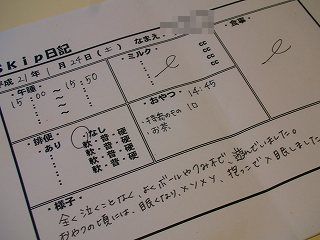 Skip日記
平成21年1月24日(土) なまえ
・午睡
15:00 ～ 15:50
：～：
：～：
・ミルク
： cc
： cc
： cc
・食事
・おやつ 14:45
・持参のもの
お茶
・排便
あり・なし
： 軟・普・硬
： 軟・普・硬
： 軟・普・硬
・様子
全く泣くことなく、よくボールやつみ木で、遊んでいました。
おやつの頃には、眠くなり、メソメソ、抱っこで入眠しました。